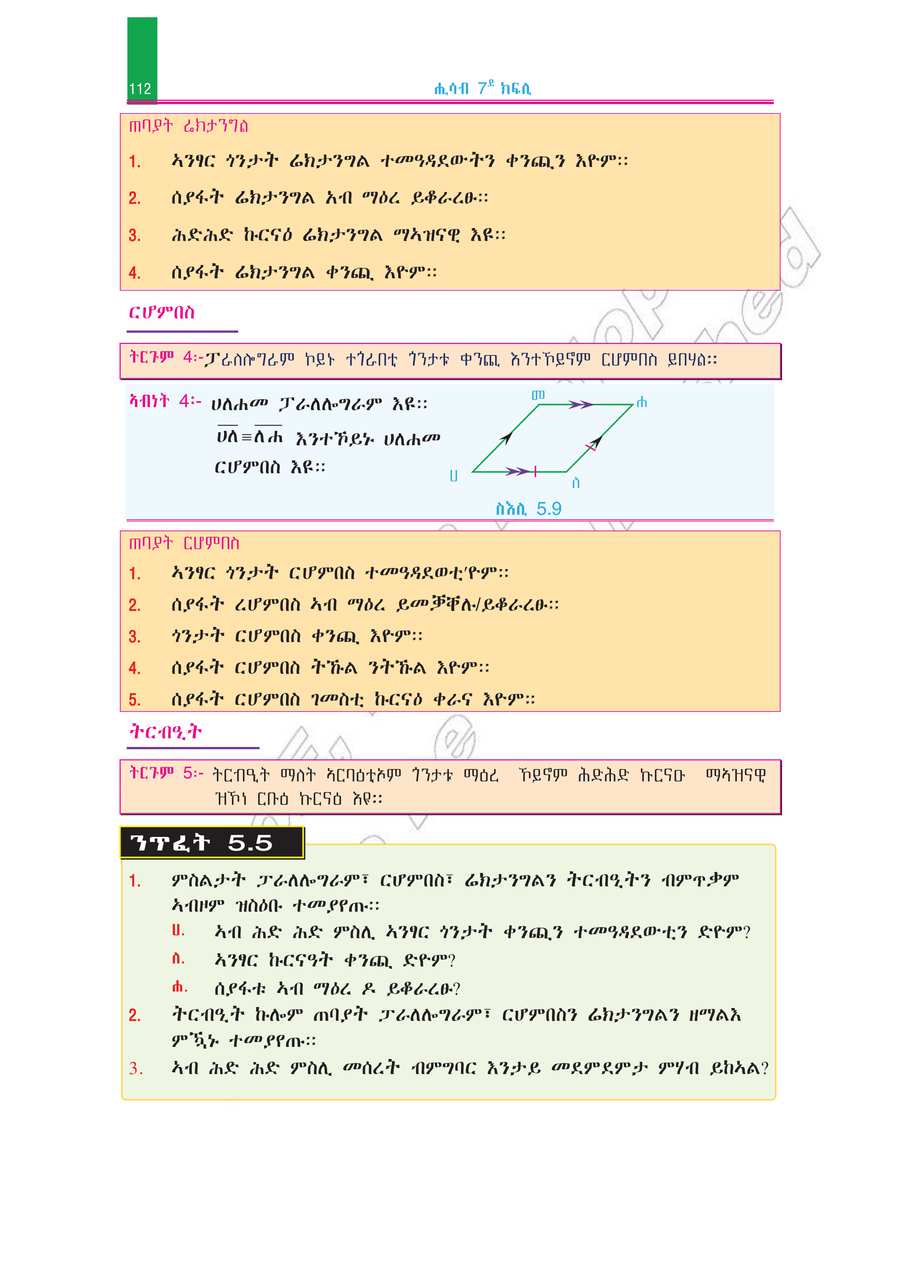 112
ሒሳብ 7ይ ክፍሊ
ጠባያት ሬክታንግል
1. ኣንፃር ጎንታት ሬክታንግል ተመዓዳደውትን ቀንጪን እዮም።
2. ሰያፋት ሬክታንግል አብ ማዕረ ይቆራረፁ።
3. ሕድሕድ ኩርናዕ ሬክታንግል ማኣዝናዊ እዩ።
4. ሰያፋት ሬክታንግል ቀንጪ እዮም።
ርሆምበስ
ትርጉም 4:-ፓራሰሎግራም ኮይኑ ተጎራበቲ ጎንታቱ ቀንጪ እንተኾይኖም ርሆምበስ ይበሃል።
ኣብነት 4:- ሀለሐመ ፓራለሎግራም እዩ።
ሀለ≡ለሐ እንተኾይኑ ሀለሐመ
ርሆምበስ እዩ።
መ ሐ
ሀ ለ
ስእሊ 5.9
ጠባያት ርሆምበስ
1. ኣንፃር ጎንታት ርሆምበስ ተመዓዳደወቲ'ዮም።
2. ሰያፋት ረሆምበስ ኣብ ማዕረ ይመቓቐሉ/ይቆራረፁ።
3. ጎንታት ርሆምበስ ቀንጪ እዮም።
4. ሰያፋት ርሆምበስ ትኹል ንትኹል እዮም።
5. ሰያፋት ርሆምበስ ገመስቲ ኩርናዕ ቀራና እዮም።
ትርብዒት
ትርጉም 5:- ትርብዒት ማለት ኣርባዕቲኦም ጎንታቱ ማዕረ ኾይኖም ሕድሕድ ኩርናዑ ማኣዝናዊ
ዝኾነ ርቡዕ ኩርናዕ እዩ።
ንጥፈት 5.5
1. ምስልታት ፓራለሎግራም፣ ርሆምበስ፣ ሬክታንግልን ትርብዒትን ብምጥቃም
ኣብዞም ዝስዕቡ ተመያየጡ።
ሀ. ኣብ ሕድ ሕድ ምስሊ ኣንፃር ጎንታት ቀንጪን ተመዓዳደውቲን ድዮም?
ለ. ኣንፃር ኩርናዓት ቀንጪ ድዮም?
ሐ. ሰያፋቱ ኣብ ማዕረ ዶ ይቆራረፁ?
2. ትርብዒት ኩሎም ጠባያት ፓራለሎግራም፣ ርሆምበስን ሬክታንግልን ዘማልእ
ምዃኑ ተመያየጡ።
3. ኣብ ሕድ ሕድ ምስሊ መሰረት ብምግባር እንታይ መደምደምታ ምሃብ ይከኣል?